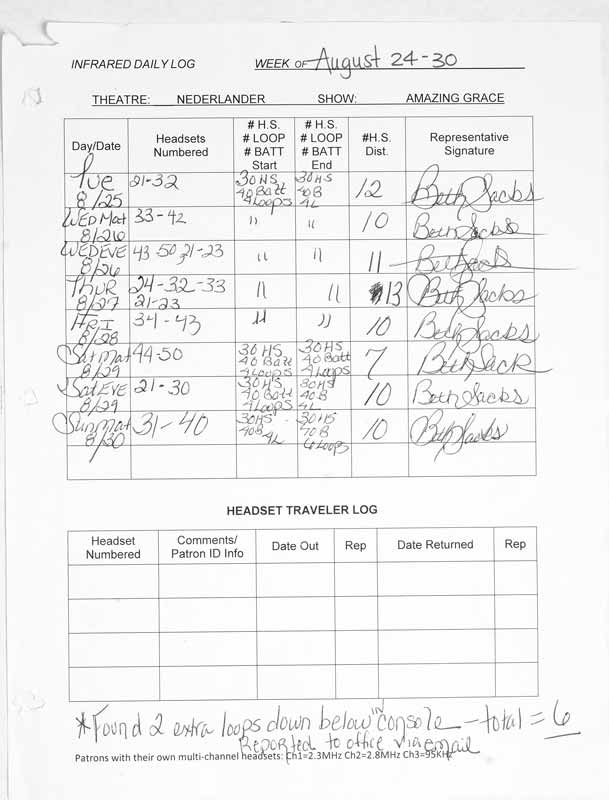 INFRARED DAILY LOG WEEK OF August 24-30
THEATRE: NEDERLANDER SHOW: AMAZING GRACE
Day/Date Headsets Numbered # H.S. # LOOP # BATT Start # H.S. # LOOP # BATT End #H.S. Dist. Representative Signature
Tue 8/25 21-32 30 HS 40 Batt 4 Loops 30 HS 40 B 4 L 12 Beth Sacks
WED Mat 8/26 33-42 " " 10 Beth Sacks
WED EVE 8/26 43-50, 21-23 " " 11 Beth Sacks
THUR 8/27 24-32-33 21-23 " " 13 Beth Sacks
FRI 8/28 34-43 " " 10 Beth Sacks
Sat Mat 8/29 44-50 30 HS 40 Batt 4 Loops 30 HS 40 Batt 4 Loops 7 Beth Sack
Sat EVE 8/29 21-30 30 HS 40 Batt 4 Loops 30 HS 40 B 4 L 10 Beth Sacks
Sun Mat 8/30 31-40 30 HS 40 B 4 L 30 HS 70 B 6 Loops 10 Beth Sacks
HEADSET TRAVELER LOG
Headset Numbered Comments/ Patron ID Info Date Out Rep Date Returned Rep
*Found 2 extra loops down below in console - total = 6
Reported to office via email
Patrons with their own multi-channel headsets: Ch1=2.3MHz Ch2=2.8MHz Ch3=95KHz